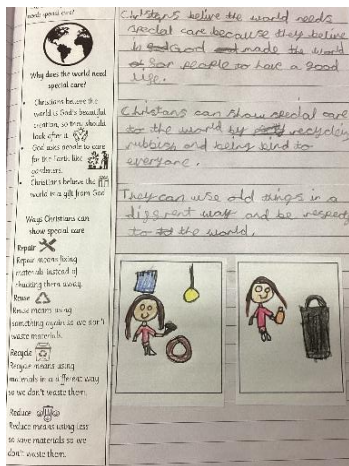 needs special care?
Why does the world need
special care?
Christians believe the
world is God's beautiful
creation, so they should
look after it.
God asks people to care
for the Earth like
gardeners.
Christians believe the
world is a gift from God
Ways Christians can
show special care
Repair
Repair means fixing
materials instead of
chucking them away.
Reuse
Reuse means using
something again so we don't
waste materials.
Recycle
Recycle means using
materials in a different way
so we don't waste them.
Reduce
Reduce means using less
to save materials so we
don't waste them.
Christans belive the world needs
special care because they belive
God made the world
for people to have a good
life.
Christans can show special care
to the world by recycling
rubbish and being kind to
everyone.
They can use old things in a
different way and be respect
to the world.